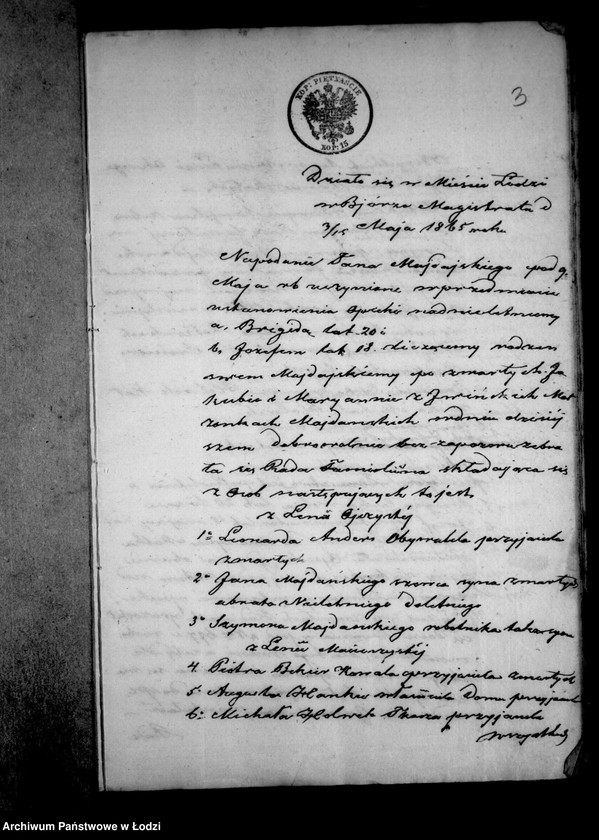 3
KOP: PIĘTNAŚCIE
KOP: 15
Działo się w Mieście Łodzi
w Biórze Magistratu d
3/15 Maja 1865 roku
Na podanie Jana Majdajskiego pod 9
Maja rb uczynione w przedmiocie
ustanowienia Opieki nad nieletniemy
a, Brygidą lat. 20 i
b, Jozefem lat 18. liczącemy rodzeń
stwem Majdajskiemy po zmarłych Ja
kubie i Maryannie z małżonkach Majdanskich w dniu dzisiej
szem dobrowolnie bez zapozwu zebra
ła się Rada Familijna składająca się
z Osob następujących to jest
z Lenii Ojczystej
1o Leonarda Anders Obywatela przyjaciela
zmarłych
2o Jana Majdańskiego szewca syna zmarłych
a brata Nieletniego doletniego
3o Szymona Majdanskiego robotnika także syna
z Lenii Macierzystej
4. Piotra Kowala przyjaciela zmarłych
5o Augusta właściciela Domu przyjaciela
6o Michała Tkacza przyjaciela
wszystkich
Archiwum Państwowe w Łodzi